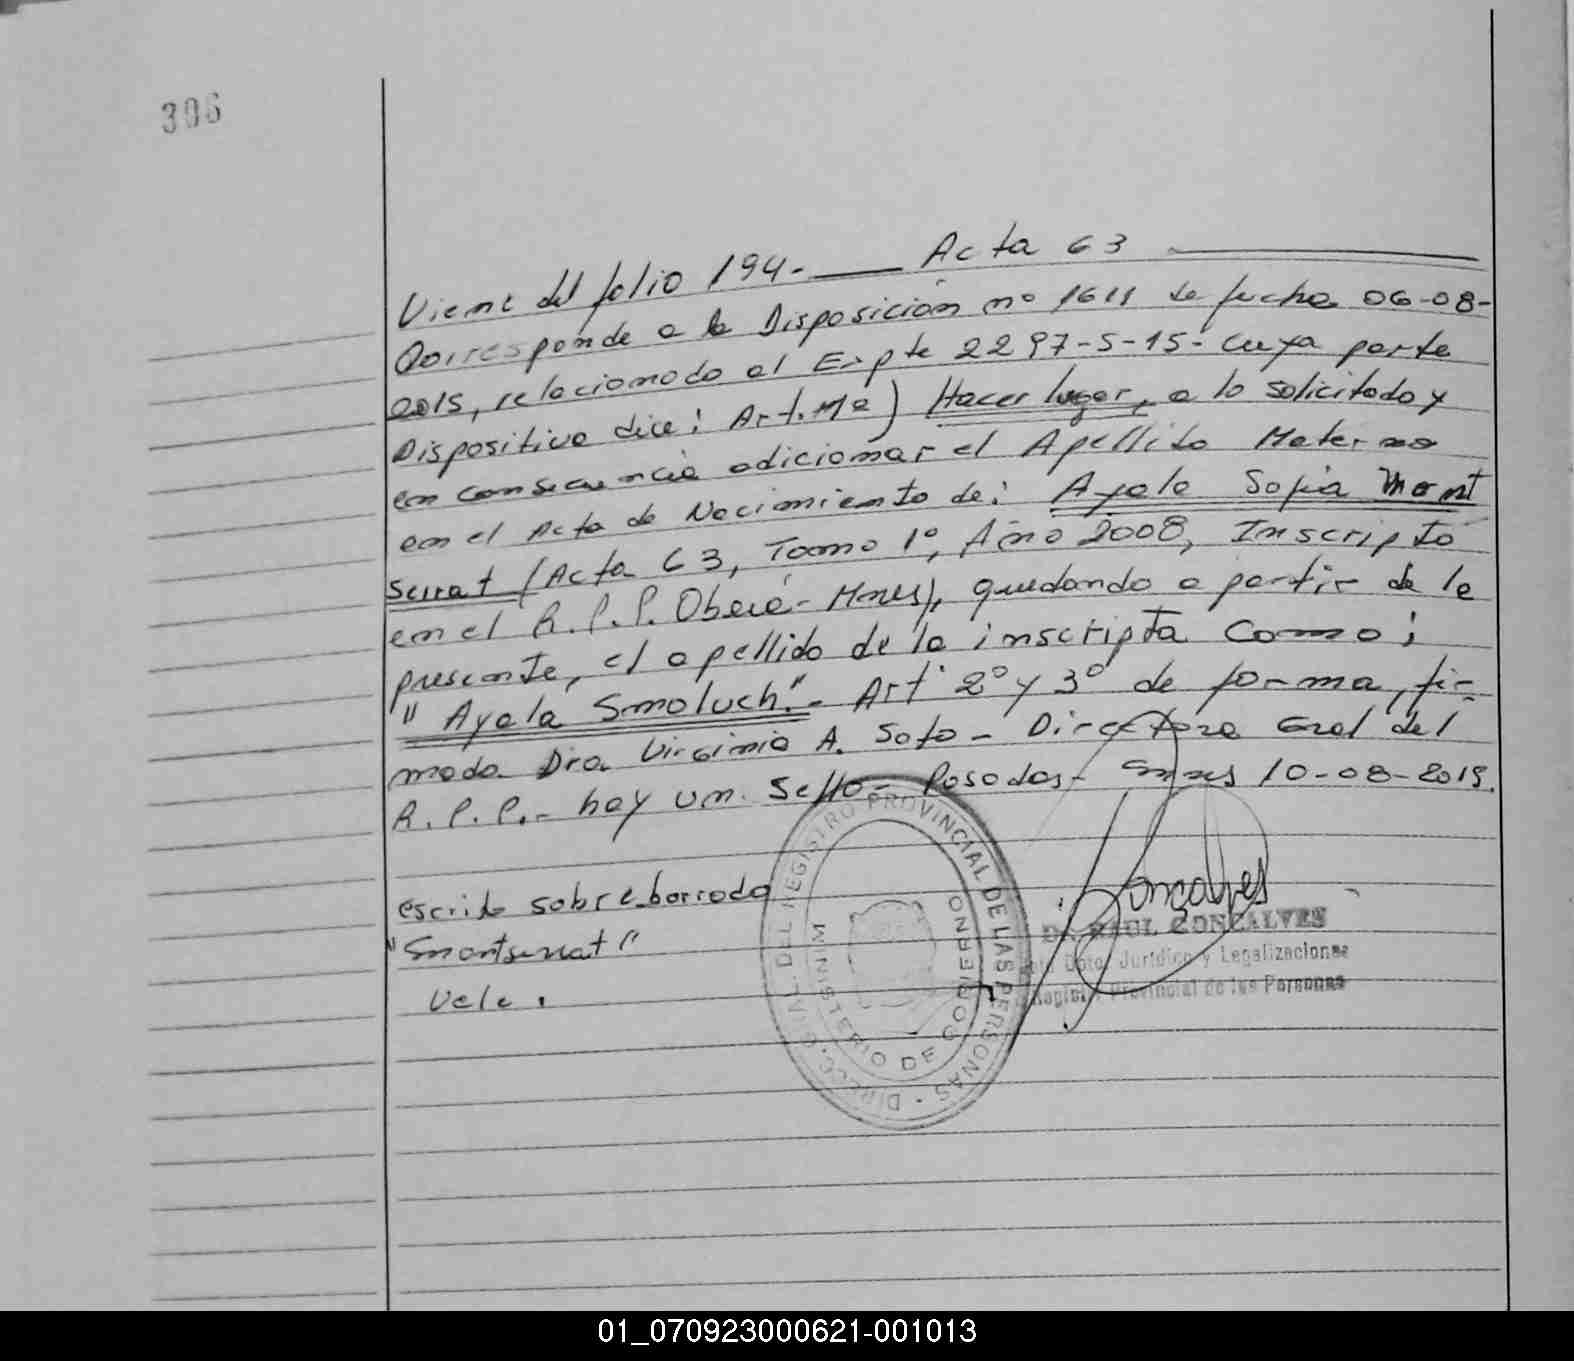 306
Viene del folio 194.- Acta 63
Corresponde a la Disposición nº 1611 de fecha 06-08-
2015, relacionado al Expte 2297-S-15- cuya parte
Dispositiva dice: Art. 1º) Hacer lugar, a lo solicitado y
en consecuencia adicionar el Apellido Materno
en el Acta de Nacimiento de: Ayala Sofia Mont
serrat (Acta 63, Tomo 1º, Año 2008, Inscripta
en el R.P.P. Oberá- Mnes), quedando a partir de la
presente, el apellido de la inscripta como:
"Ayala Smoluch".- Art 2º y 3º de forma, fir-
mado Dra. Virginia A. Soto - Directora Gral del
R.P.P.- hay un Sello- Posadas- Mnes 10-08-2015.
escrito sobre borrado
"Montserrat"
Vale.
DIRECC. GRAL. DEL REGISTRO PROVINCIAL DE LAS PERSONAS -
MINISTERIO DE GOBIERNO
Goncalves
RAUL GONCALVES
Dpto. Jurídico y Legalizaciones
Registro Provincial de las Personas
01_070923000621-001013